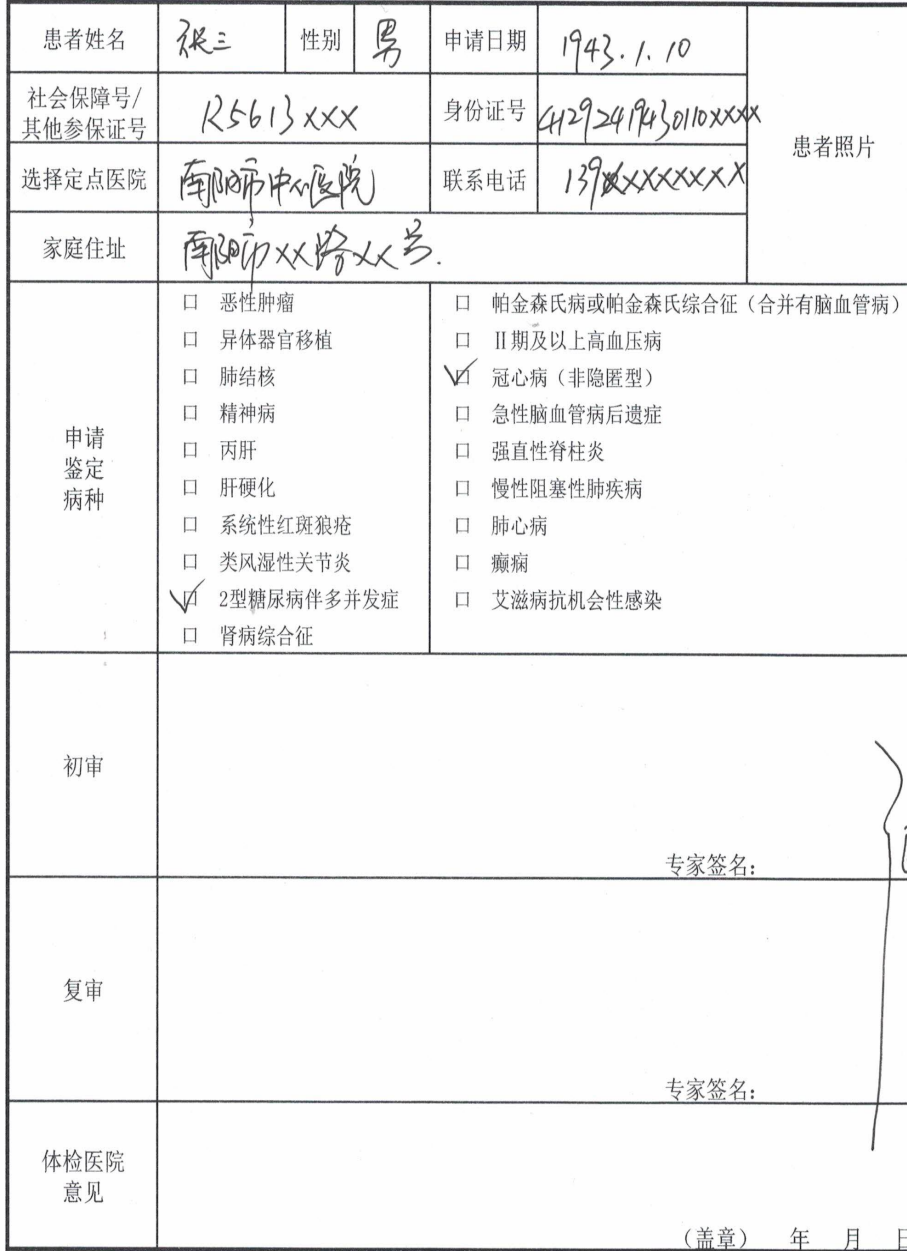 患者姓名 张三 性别 男 申请日期 1943.1.10
社会保障号/
其他参保证号 R5613xxx 身份证号 41292419430110xxxx
患者照片
选择定点医院 南阳市中心医院 联系电话 139xxxxxxxx
家庭住址 南阳市xx路xx号.
申请
鉴定
病种
口 恶性肿瘤
口 异体器官移植
口 肺结核
口 精神病
口 丙肝
口 肝硬化
口 系统性红斑狼疮
口 类风湿性关节炎
√口 2型糖尿病伴多并发症
口 肾病综合征
口 帕金森氏病或帕金森氏综合征（合并有脑血管病）
口 II期及以上高血压病
√口 冠心病（非隐匿型）
口 急性脑血管病后遗症
口 强直性脊柱炎
口 慢性阻塞性肺疾病
口 肺心病
口 癫痫
口 艾滋病抗机会性感染
初审
专家签名：
复审
专家签名：
体检医院
意见
（盖章） 年 月 日